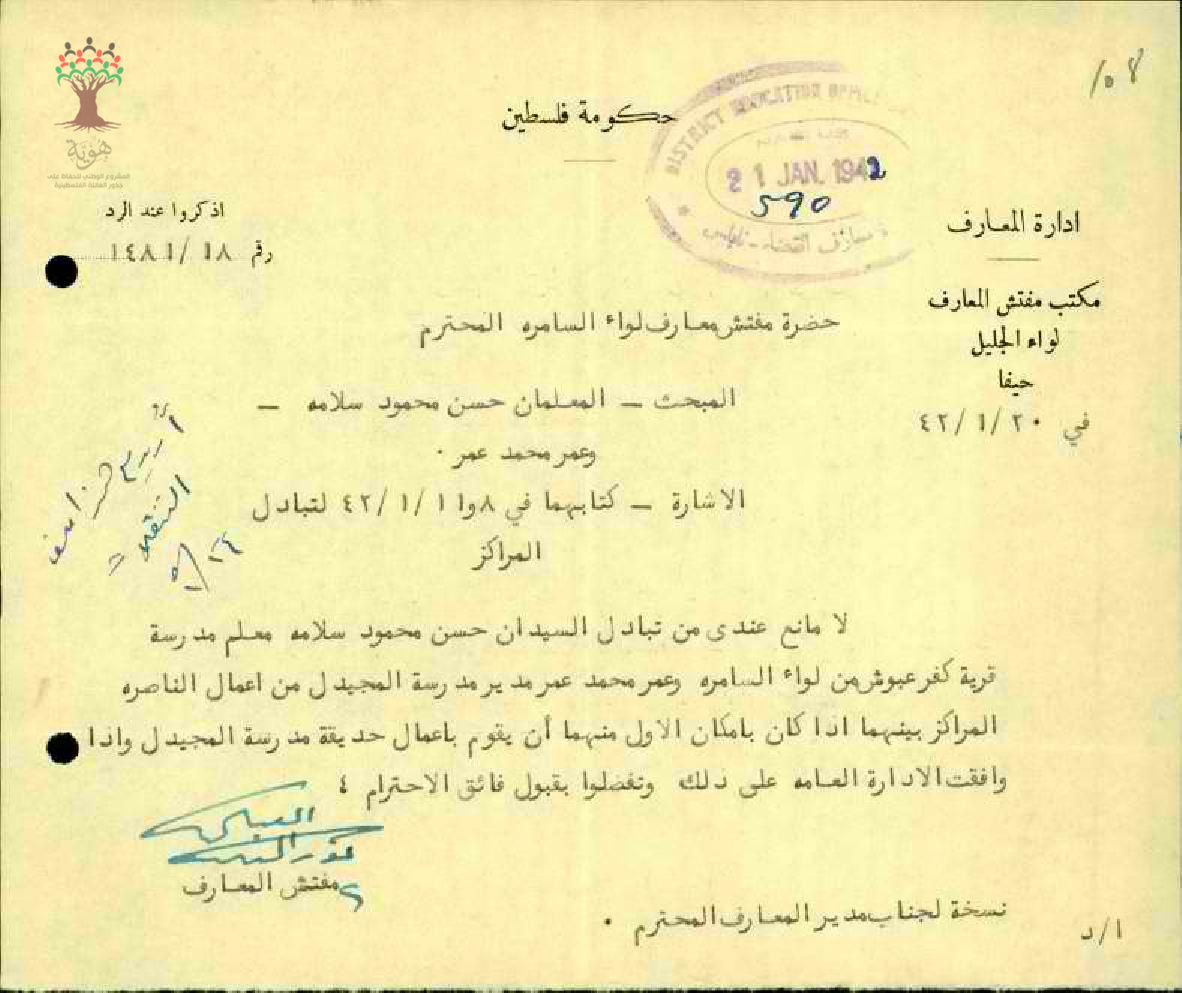 ١٥٨
حكومة فلسطين
DISTRICT EDUCATION OFFICE
21 JAN. 1942
590
معارف القضاء - نابلس
هوية
المشروع الوطني للحفاظ على
جذور العائلة الفلسطينية
اذكروا عند الرد
رقم ١٨ /١٤٨١
ادارة المعارف
مكتب مفتش المعارف
لواء الجليل
حيفا
في ٢٠ /١ /٤٢
حضرة مفتش معارف لواء السامره المحترم
المبحث - المعلمان حسن محمود سلامه -
وعمر محمد عمر .
الاشارة - كتابهما في ٨و١١ /١ /٤٢ لتبادل
المراكز
لا مانع عندى من تبادل السيدان حسن محمود سلامه معلم مدرسة
قرية كفر عبوش من لواء السامره وعمر محمد عمر مدير مدرسة المجيدل من اعمال الناصره
المراكز بينهما اذا كان بامكان الاول منهما أن يقوم باعمال حديقة مدرسة المجيدل واذا
وافقت الادارة العامه على ذلك وتفضلوا بقبول فائق الاحترام ٤
مفتش المعارف
نسخة لجناب مدير المعارف المحترم .
ا/د